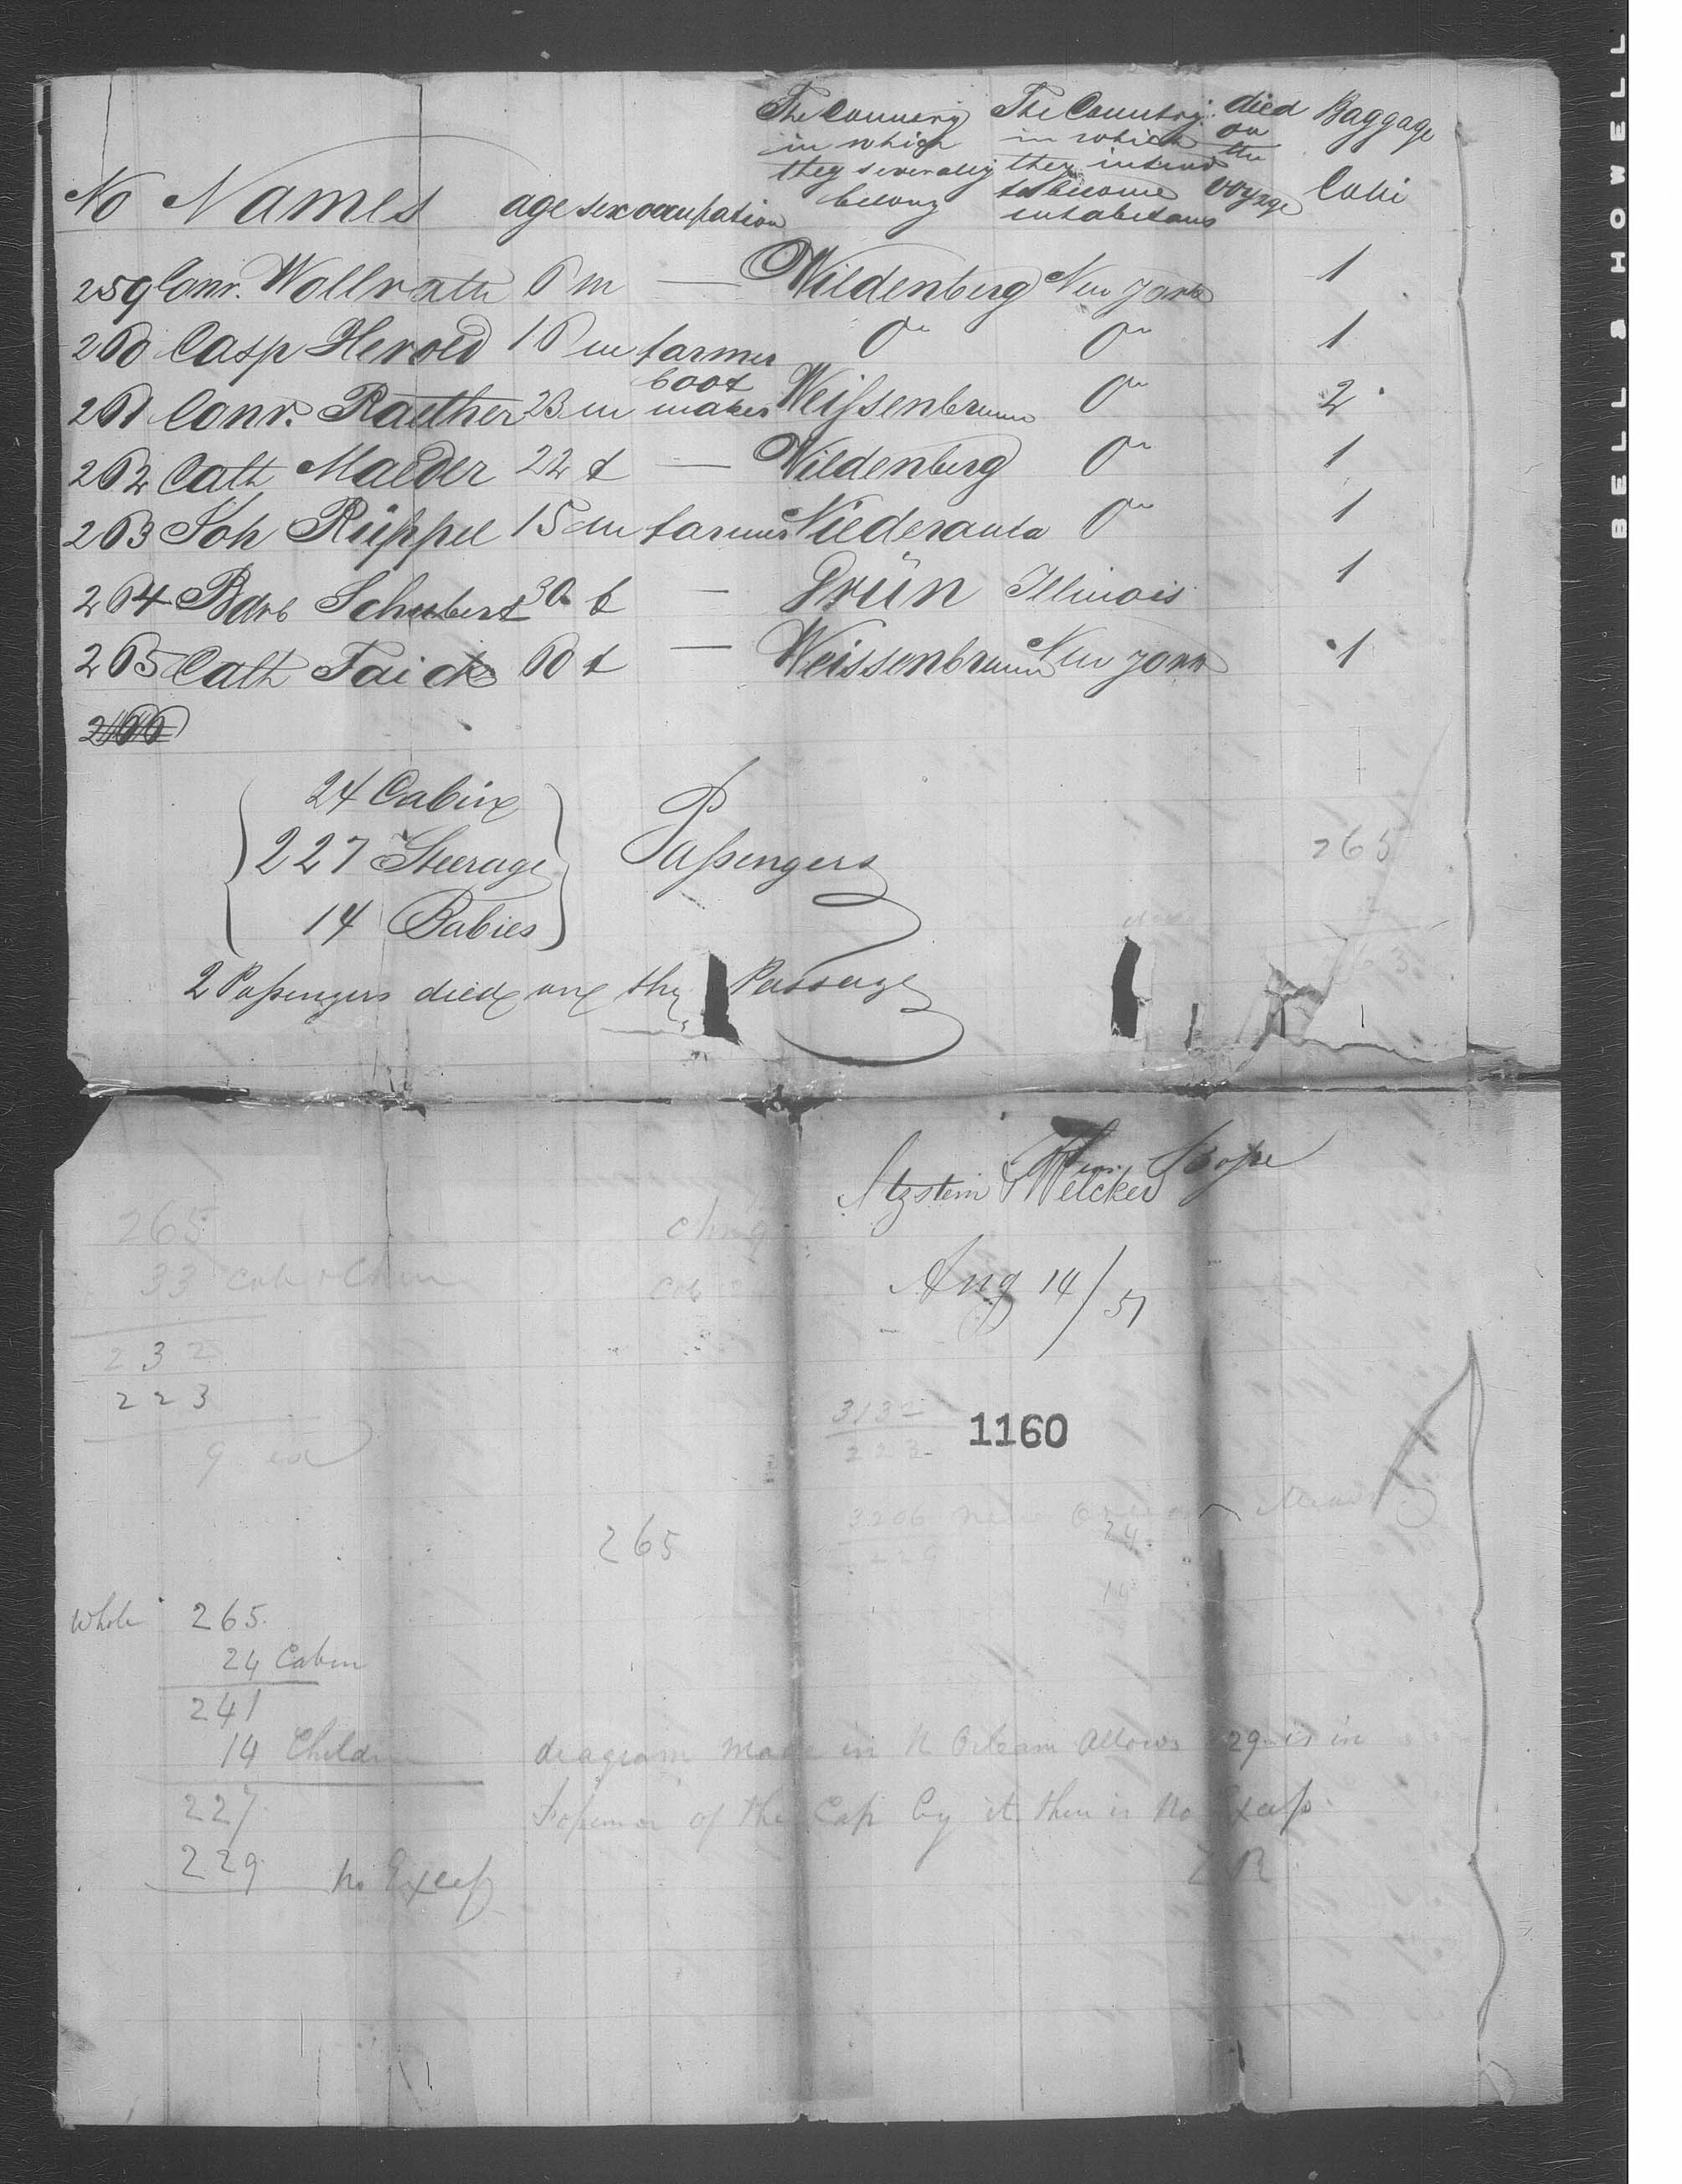 The Country The Country died Baggage
in which in which on
they severally they intend the
No Names age sex occupation belong to become voyage Colli
inhabitans
259 Conr. Wollrath 6 m — Wildenberg New York 1
260 Casp Herold 16 m farmer Do Do 1
261 Conr. Raether 23 m boot maker Weißenbrunn Do 2
262 Cath Maeder 22 f — Wildenberg Do 1
263 Joh Rüppel 15 m farmer Niederaula Do 1
264 Barb Schubert 30 f — Grün Illinois 1
265 Cath Faick 60 f — Weissenbrunn New York 1
266
24 Cabin
227 Steerage Paßengers 265
14 Babies
2 Paßengers died on the Passage
Welcker
Aug 14/57
265
33
232
223
9
3132
223
1160
3206
24
229
14
265
Whole 265
24 Cabin
241
14 Children
227
229 no Exceß
diagram made in N Orleans Allows 229 is in
of the Cap by it there is No Exceß
BELL & HOWELL